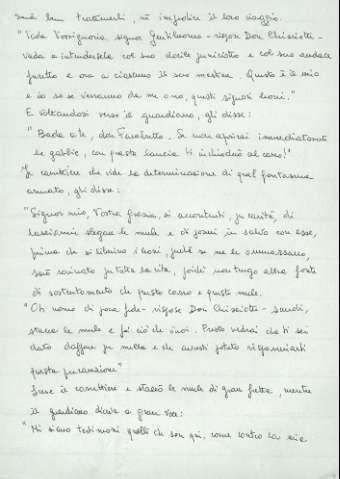 senza ben trattenerli, nè impedire il loro viaggio.
"Vada Vossignoria, signor Gentiluomo - rispose Don Chisciotte -
vada a intendersela col suo docile perniciotto e col suo audace
furetto e ora a ciascuno il suo mestiere. Questo è il mio
e io so se verranno da me o no, questi signori leoni."
E voltandosi verso il guardiano, gli disse:
"Bada a te, don Furfante. Se non aprirai immediatamente
le gabbie, con questa lancia ti inchioderò al carro!"
Il carrettiere che vide la determinazione di quel fantasma
armato, gli disse:
"Signor mio, Vostra Grazia, si accontenti, per carità, di
lasciarmi slegare le mule e di pormi in salvo con esse,
prima che si liberino i leoni, perché se me le ammazzano,
sarò rovinato per tutta la vita, poiché non tengo altra fonte
di sostentamento che questo carro e queste mule.
"Oh uomo di poca fede - rispose Don Chisciotte - scendi,
stacca le mule e fai ciò che vuoi. Presto vedrai che ti sei
dato daffare per nulla e che avresti potuto risparmiarti
questa precauzione"
Scese il carrettiere e staccò le mule di gran fretta, mentre
il guardiano diceva a gran voce:
"Mi siano testimoni quelli che son qui, come contro la mia